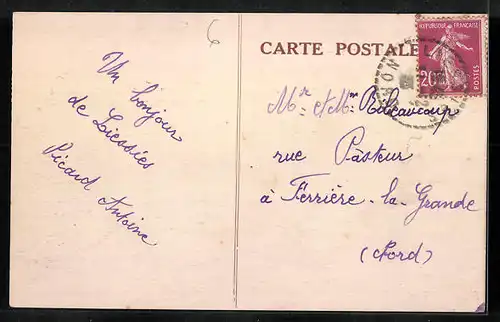 6
Un bonjour
de Liessies
Picard Antoine
CARTE POSTALE
REPUBLIQUE FRANCAISE
20
POSTES
NORD
Mr et Mme
rue Pasteur
à Ferrière-la-Grande
(Nord)